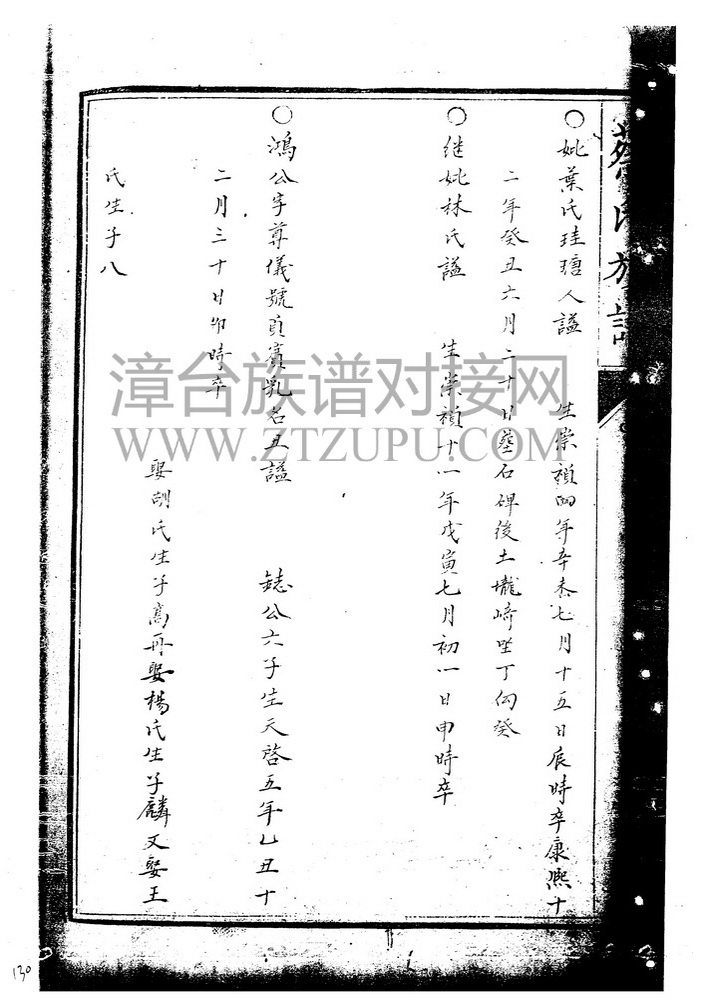 蔡氏族譜
○妣葉氏珪瓊人謚 生崇禎四年辛未七月十五日辰時卒康熙十
二年癸丑六月二十日葬石碑後土壠崎坐丁向癸
○继妣林氏謚 生崇禎十一年戊寅七月初一日申時卒
○鴻公字尊儀號貢賓乳名丑謚 鋕公六子生天啓五年乙丑十
二月三十日卯時卒
娶胡氏生子高再娶楊氏生子麟又娶王
氏生子八
漳台族谱对接网
WWW.ZTZUPU.COM
130